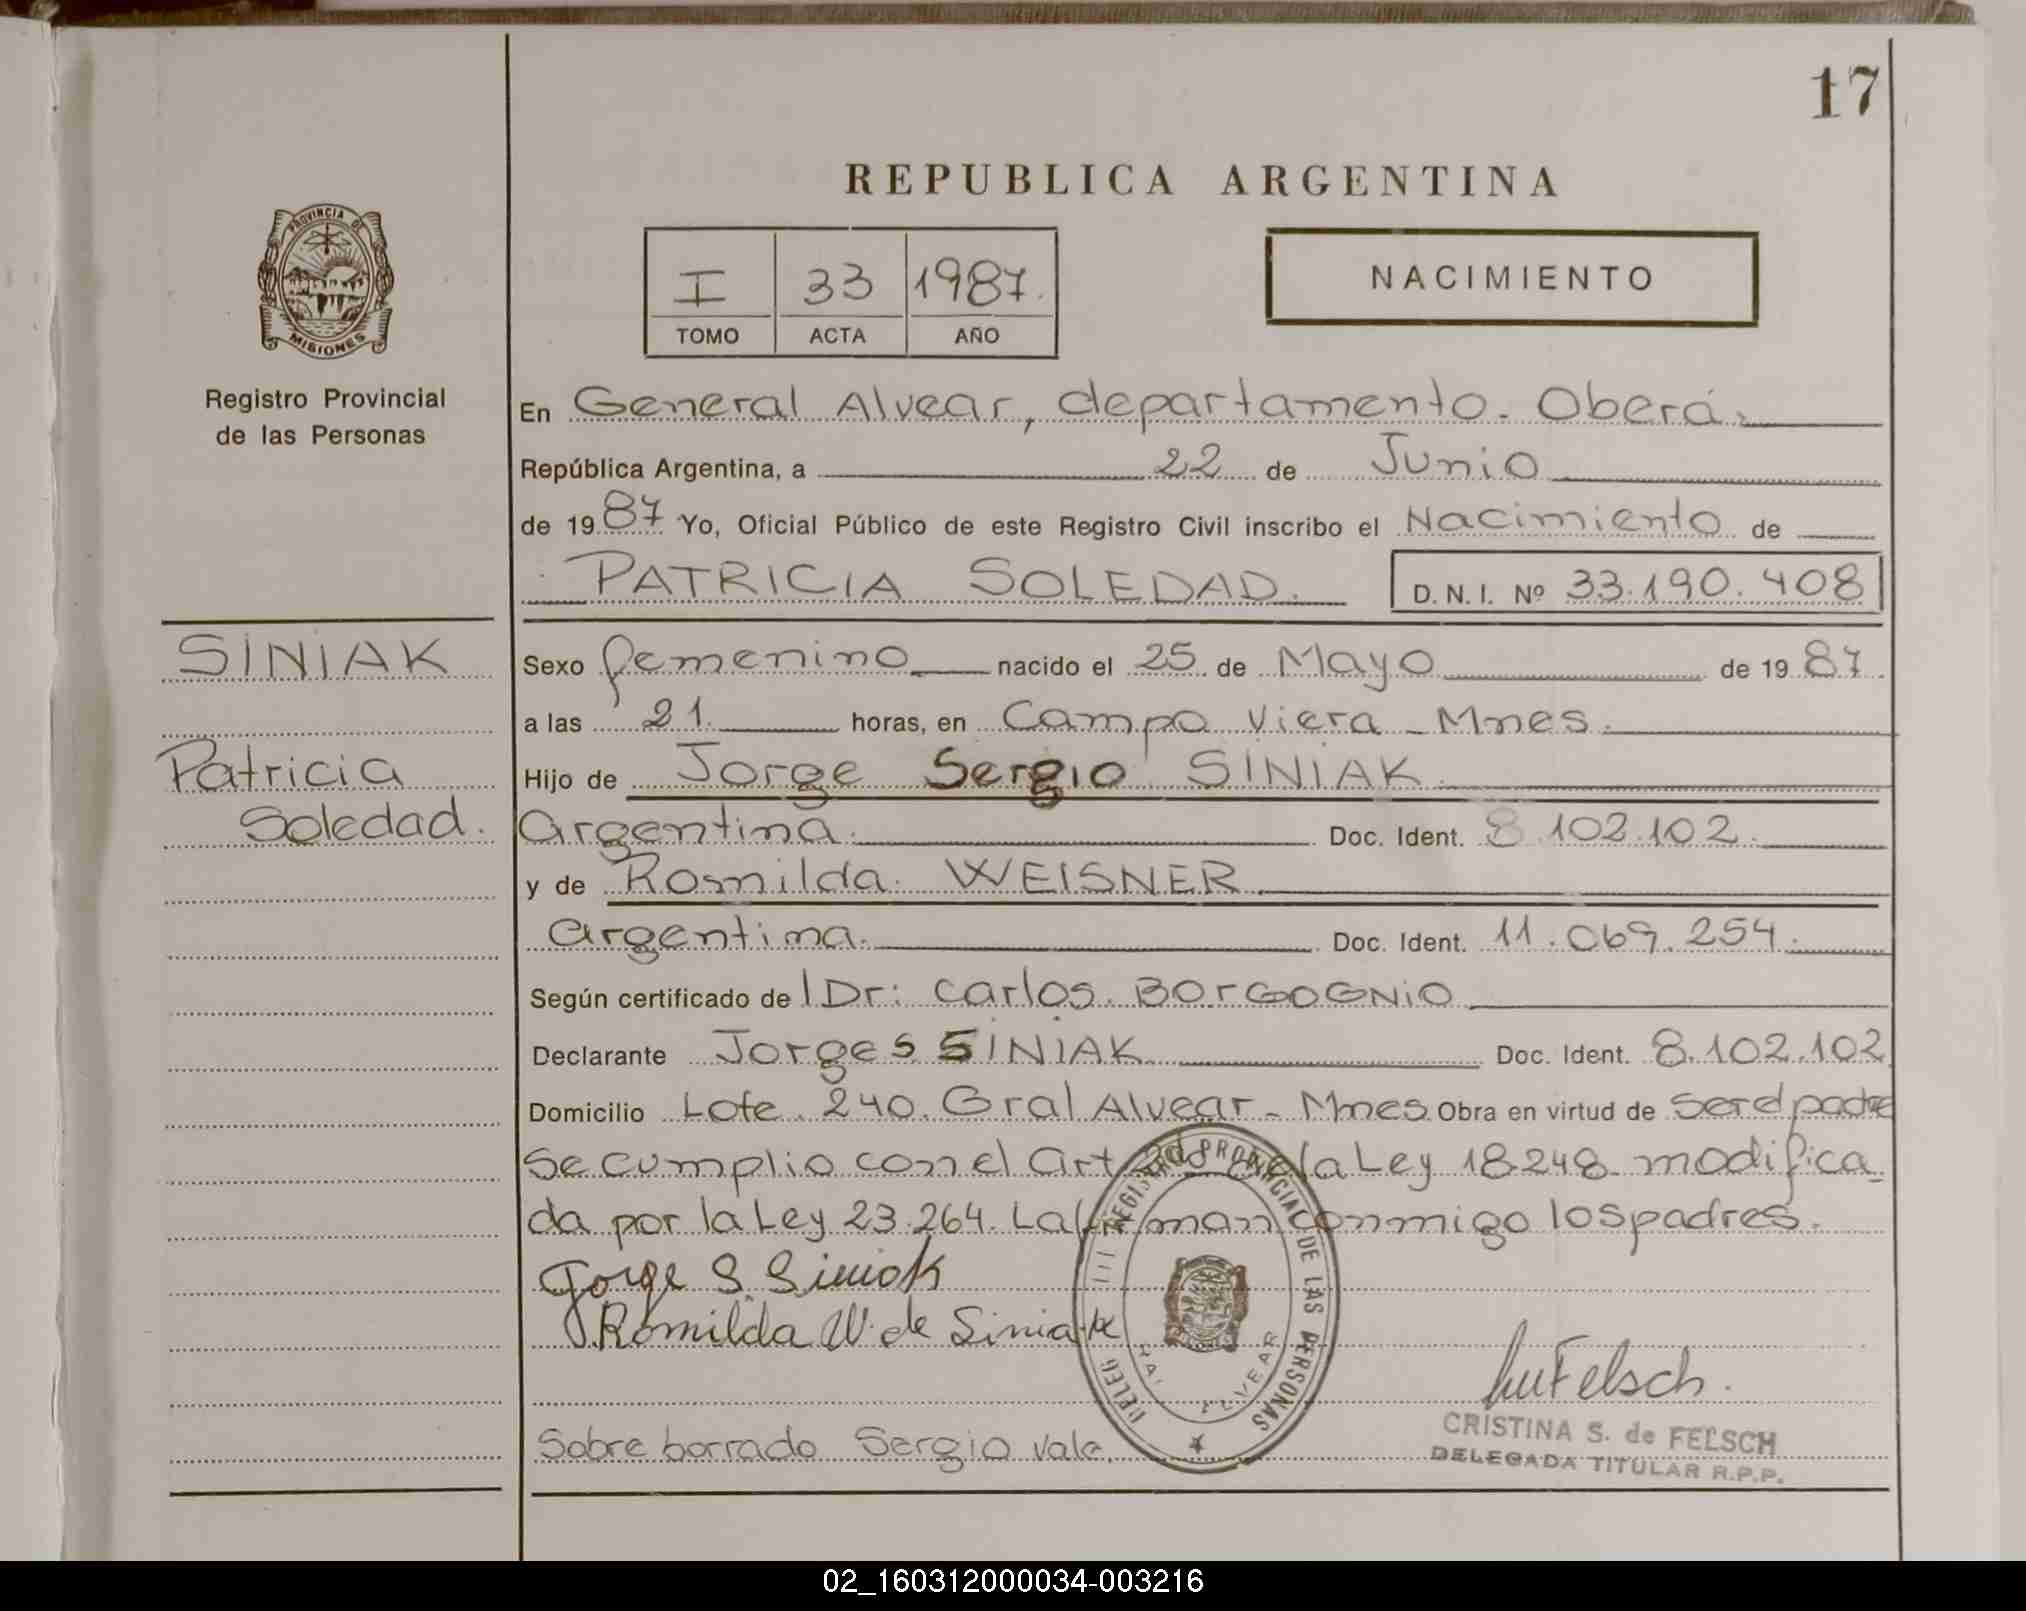 17
REPUBLICA ARGENTINA
PROVINCIA DE
MISIONES
I 33 1987.
TOMO ACTA AÑO
NACIMIENTO
Registro Provincial
de las Personas
En General Alvear, departamento. Oberá.
República Argentina, a 22 de Junio
de 1987 Yo, Oficial Público de este Registro Civil inscribo el Nacimiento de
PATRICIA SOLEDAD. D. N. I. Nº 33.190.408
SINIAK
Patricia
Soledad.
Sexo femenino nacido el 25 de Mayo de 1987
a las 21. horas, en Campo Viera - Mnes.
Hijo de Jorge Sergio SINIAK
Argentina. Doc. Ident. 8.102.102.
y de Romilda. WEISNER
argentina. Doc. Ident. 11.069.254.
Según certificado de Dr: Carlos. BORGOGNIO
Declarante Jorge S SINIAK Doc. Ident. 8.102.102
Domicilio Lote. 240. Gral Alvear - Mnes. Obra en virtud de ser el padre
Se cumplio con el art de la Ley 18248 modifica
da por la Ley 23.264. La firman conmigo los padres.
Jorge S Siniak
Romilda W. de Siniak
REGISTRO PROVINCIAL DE LAS PERSONAS
DELEG
ALVEAR
Felsch.
CRISTINA S. de FELSCH
DELEGADA TITULAR R.P.P.
Sobre borrado Sergio vale.
02_160312000034-003216